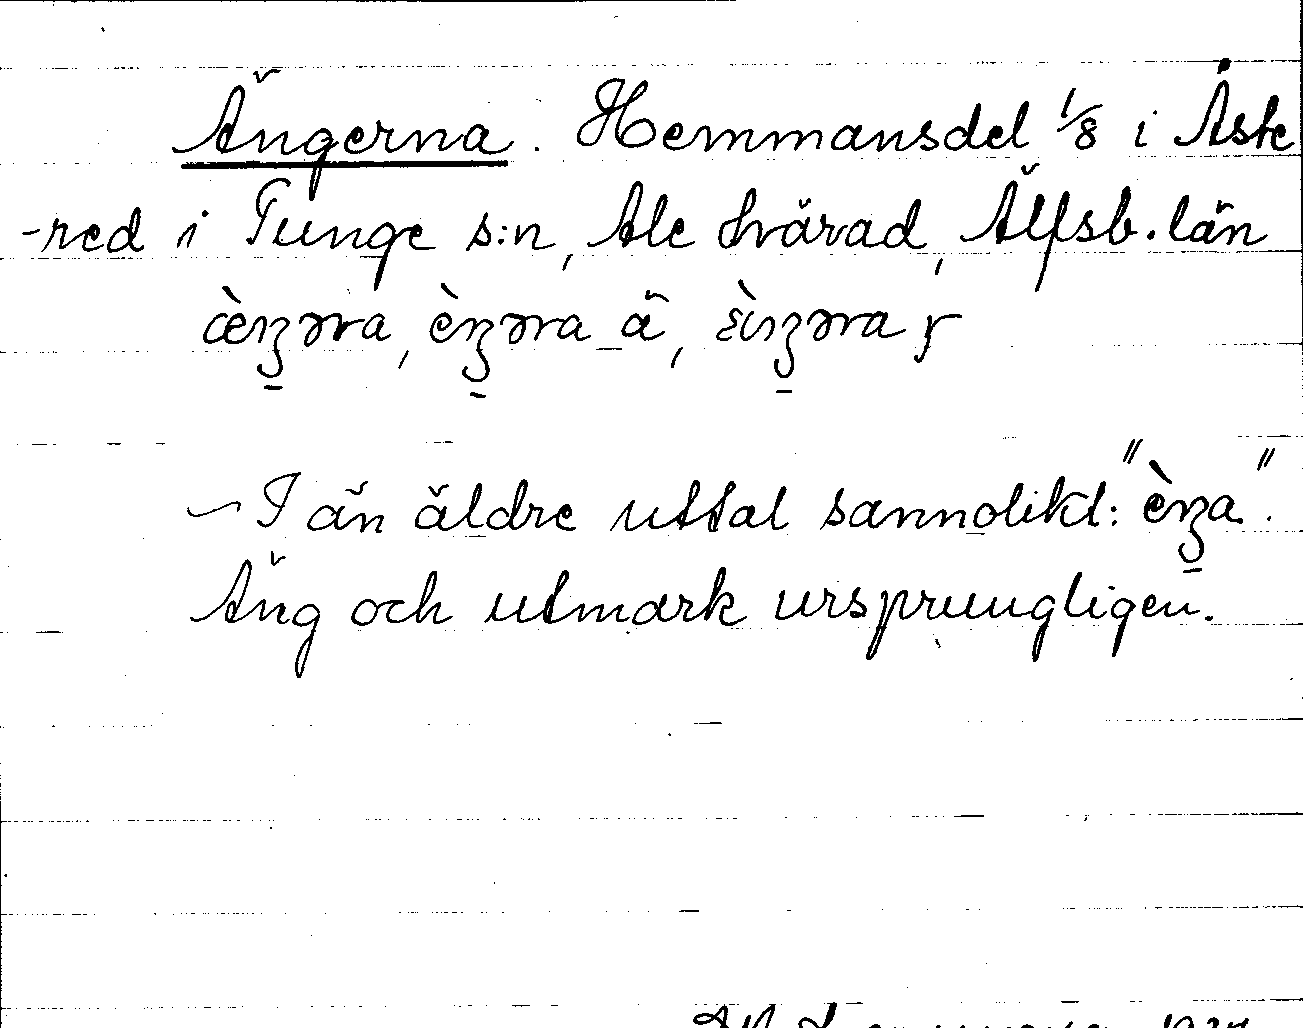 Ängerna. Hemmansdel 1/8 i Åske
-red i Tunge s:n, Ale härad, Älfsb. län
ä
– I än äldre uttal sannolikt:
Äng och utmark ursprungligen.